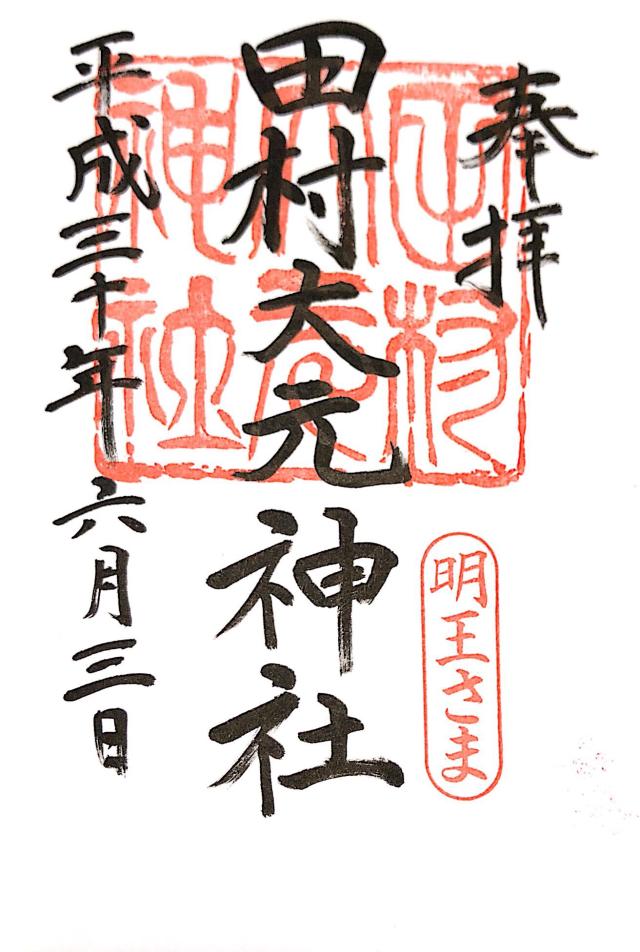 奉拝
田村大元神社
平成三十年六月三日
明王さま
田村
大元
神社